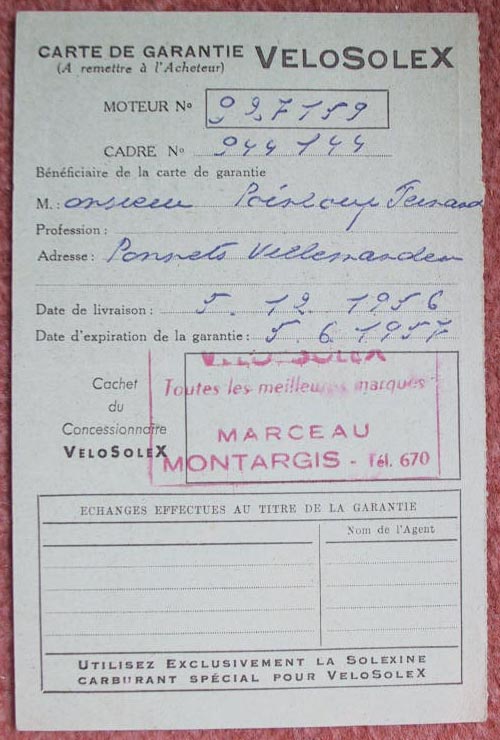 CARTE DE GARANTIE VELOSOLEX
(A remettre à l'Acheteur)
MOTEUR No 997159
CADRE No 944144
Bénéficiaire de la carte de garantie
M. : onsieur
Profession :
Adresse :
Date de livraison : 5. 12. 1956
Date d'expiration de la garantie : 5. 6. 1957
VELOSOLEX
Toutes les meilleures marques
Cachet
du
Concessionnaire
VELOSOLEX
MARCEAU
MONTARGIS - Tél. 670
ECHANGES EFFECTUES AU TITRE DE LA GARANTIE
Nom de l'Agent
UTILISEZ EXCLUSIVEMENT LA SOLEXINE
CARBURANT SPÉCIAL POUR VELOSOLEX